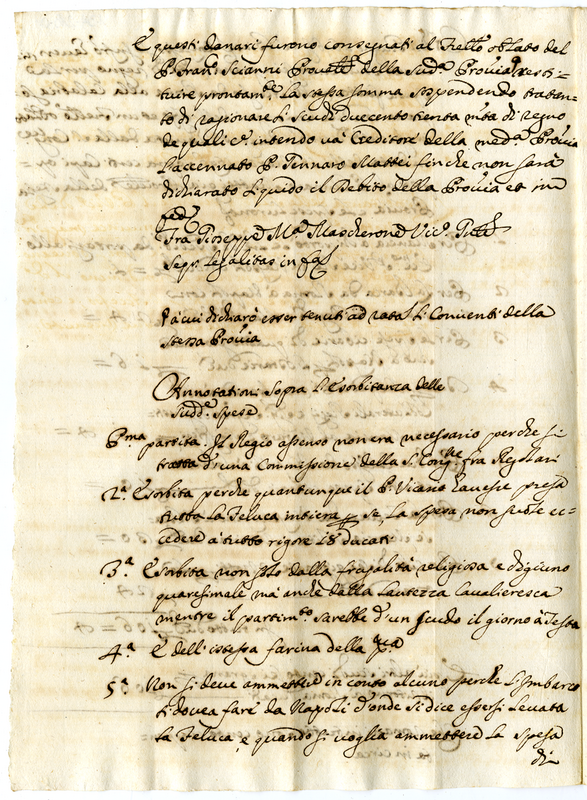 E questi danari furono consegnati al Frello oblato del
P. Fran.o Scianni Provīle della Sud.a Prōvia resti=
tuire prontam.te la stessa somma sospendendo trattan=
to di ragionare li Scudi duecento trenta m.ta di regno
de quali c. intendo va Creditore della med.a Prōvia
l'accennato P. Gennaro Mattei finche non sarà
dichiarato liquido il Debito della Prōvia et in
fed.
Fra Gioseppe M.a Mascherone Vic.
Sepr. legalitas in
à cui dichiarò esser tenuti ad rata li Conventi della
stessa Prōvia
Annotationi Sopra l'Esorbitanza delle
Sudd.e spese
P.ma partita. Il Regio assenso non era necessario perche si
tratta d'una Commissione della S. Cong.ne fra Regolari
2.a Esorbita perche quantunque il P. Vicario havesse presa
tutta la Feluca intiera p se, la spesa non suole ec=
cedere à tutto rigore 18 ducati
3.a Esorbita non solo dalla frugalità religiosa e digiuno
quaresimale mà anche dalla Lautezza Cavalieresca
mentre il partim.to sarebbe d'un scudo il giorno à testa
4.a E dell'istessa farina della
5.a Non si deve ammettere in conto alcuno perche l'Imbarco
si dovea fare da Napoli d'onde si dice essersi levata
la Feluca, e quando si voglia ammettere la spesa
di